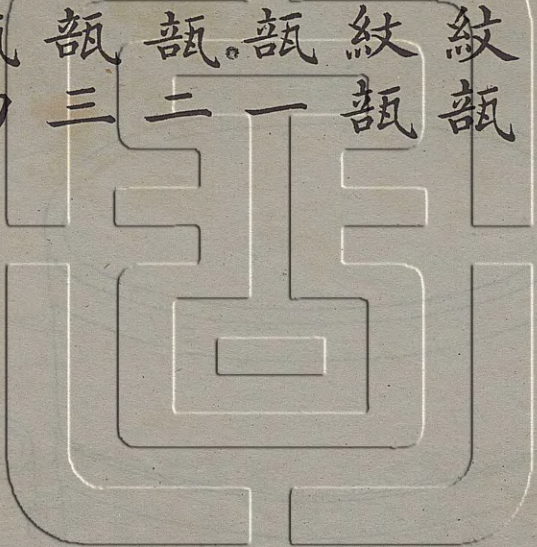 紋瓿
紋瓿
瓿一
瓿二
瓿三